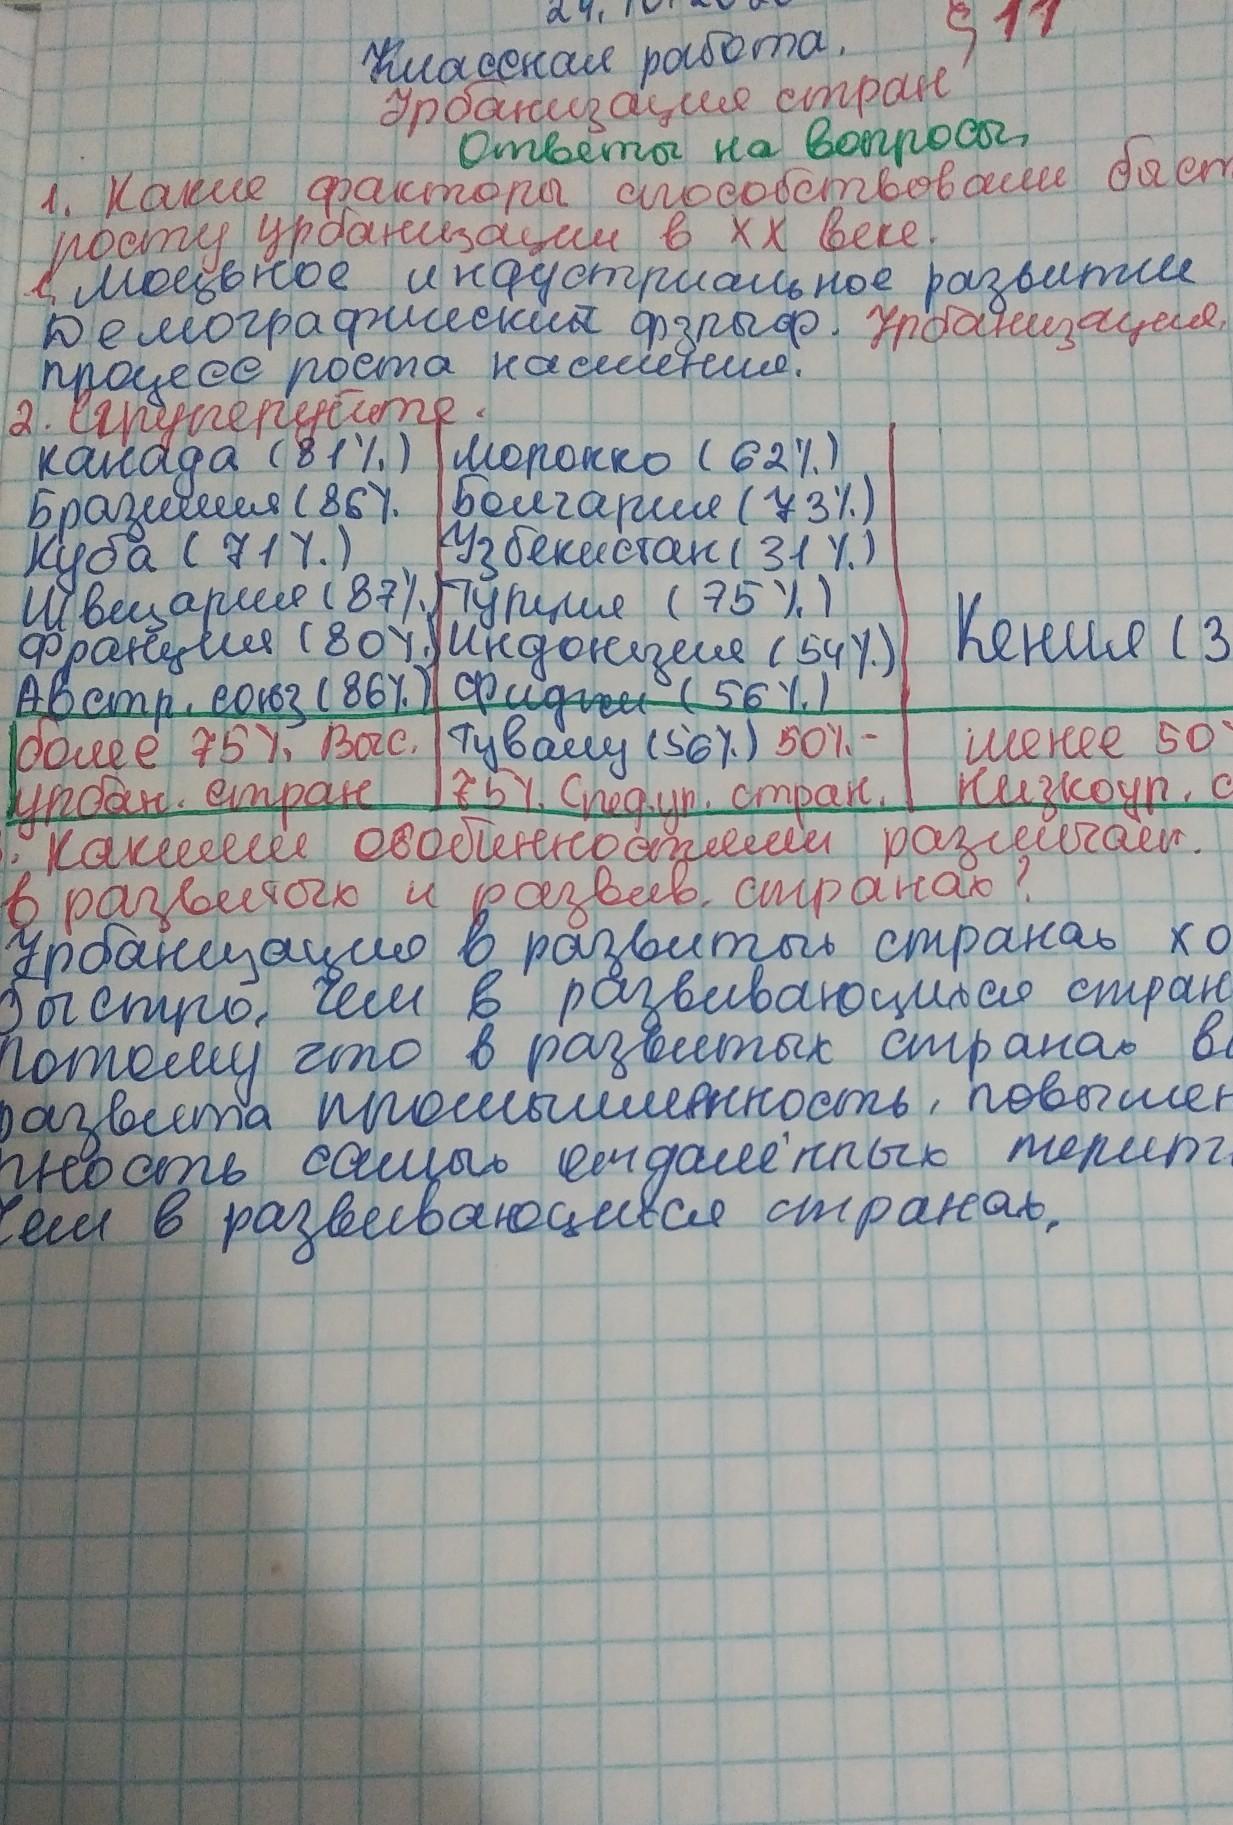 § 11
Классная работа.
Урбанизация стран
Ответы на вопросы.
1. Какие факторы способствовали быст
росту урбанизации в XX веке.
1. Мощьное индустриальное развитии
Демографический фзрыф. Урбанизация,
процесс роста населения.
2. Сгруперуйте.
Канада (81%.) Морокко (62%.)
Бразилия (86%. Болгария (73%.)
Куба (71%.) Узбекистан (31%.)
Швецария (87%. Турция (75%.)
Франция (80%.) Индонезия (54%.) Кения (3
Австр. союз (86%.) Фиджи (56%.)
более 75%. Выс. Тувалу (56%.) 50%.- менее 50%
урбан. стран 75%. Сред.ур. стран. Низкоур. с
Какими особинностями различает.
в развитых и развив. странах?
Урбанизация в развитых странах хо
быстро, чем в развивающихся стран
потому что в развитых странах в
развита промышленность, повышен
ность самых отдалённых терит
чем в развивающихся странах.